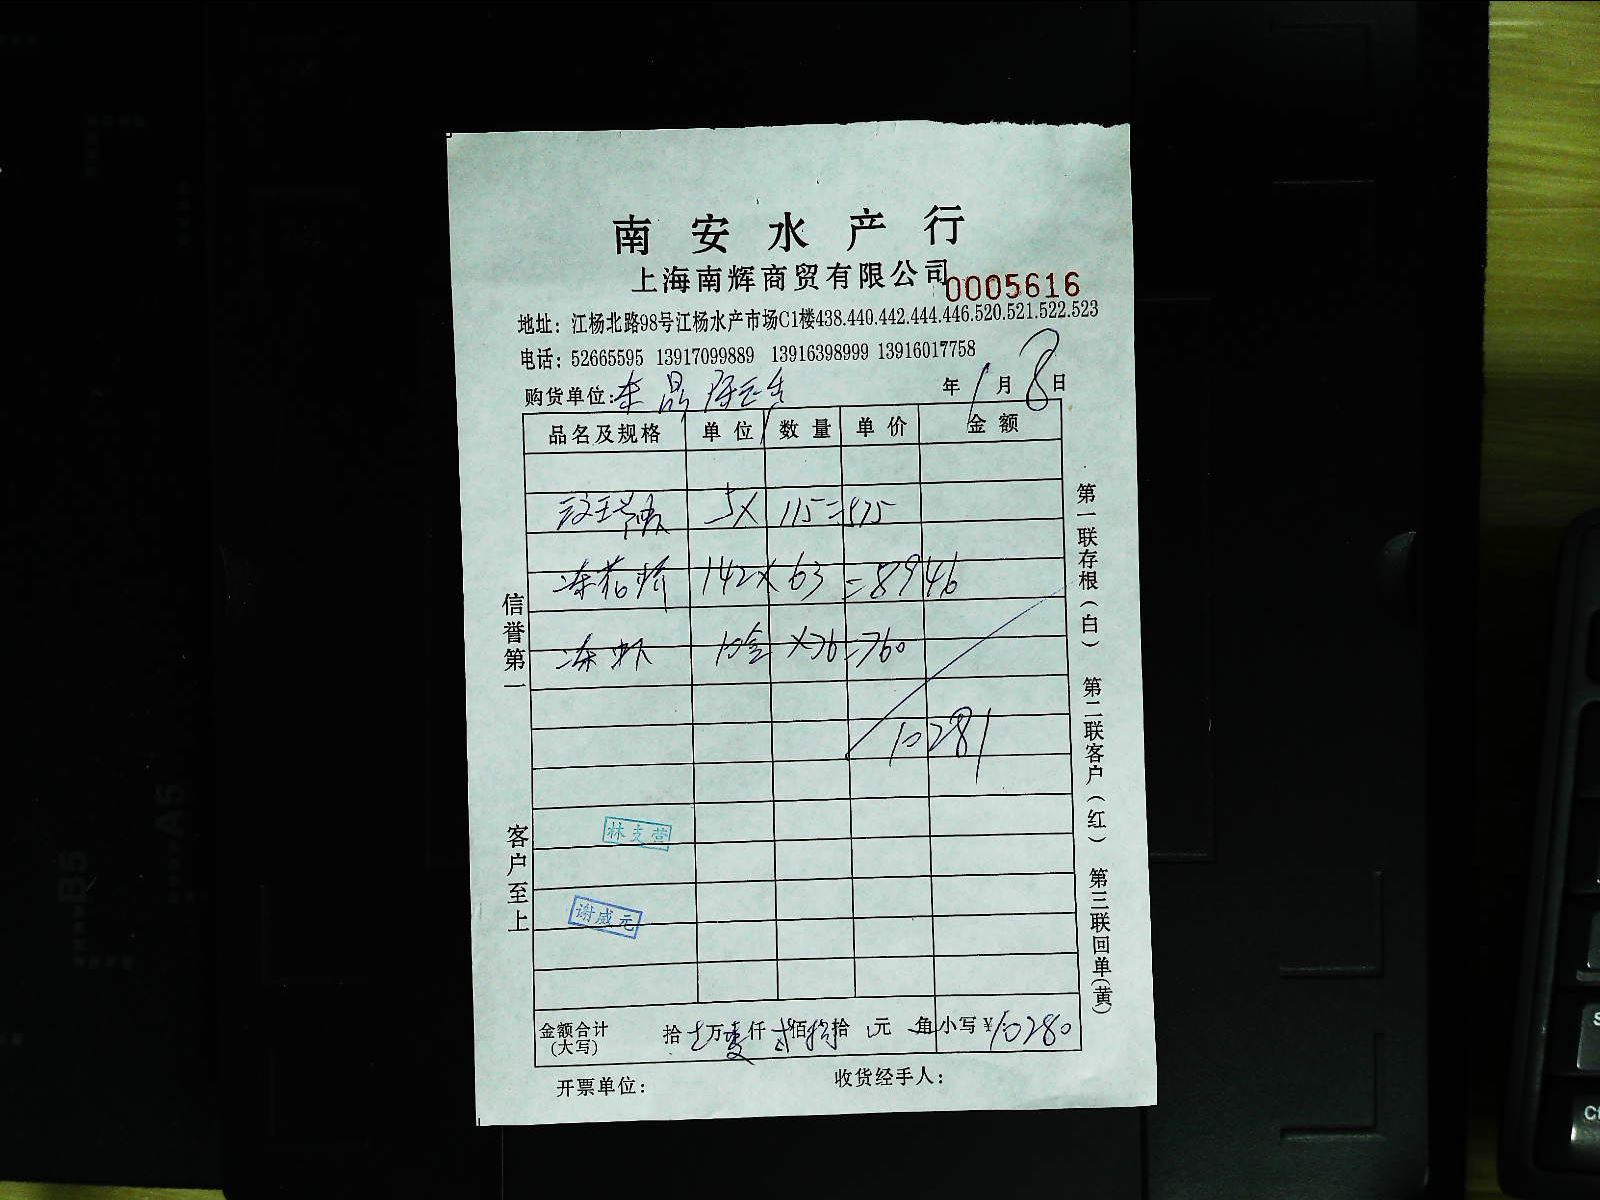 南安水产行
上海南辉商贸有限公司 0005616
地址：江杨北路98号江杨水产市场C1楼438.440.442.444.446.520.521.522.523
电话：52665595 13917099889 13916398999 13916017758
购货单位： 年 1 月 8 日
品名及规格 单位 数量 单价 金额
5× 115=575
冻 142×63=8946
冻虾 10盒 ×76=760
10281
林支营
谢威元
金额合计 拾 万 仟 佰 拾 元 角 小写¥ 10280
(大写)
开票单位： 收货经手人：
信誉第一
客户至上
第一联存根(白) 第二联客户(红) 第三联回单(黄)
B5
A5